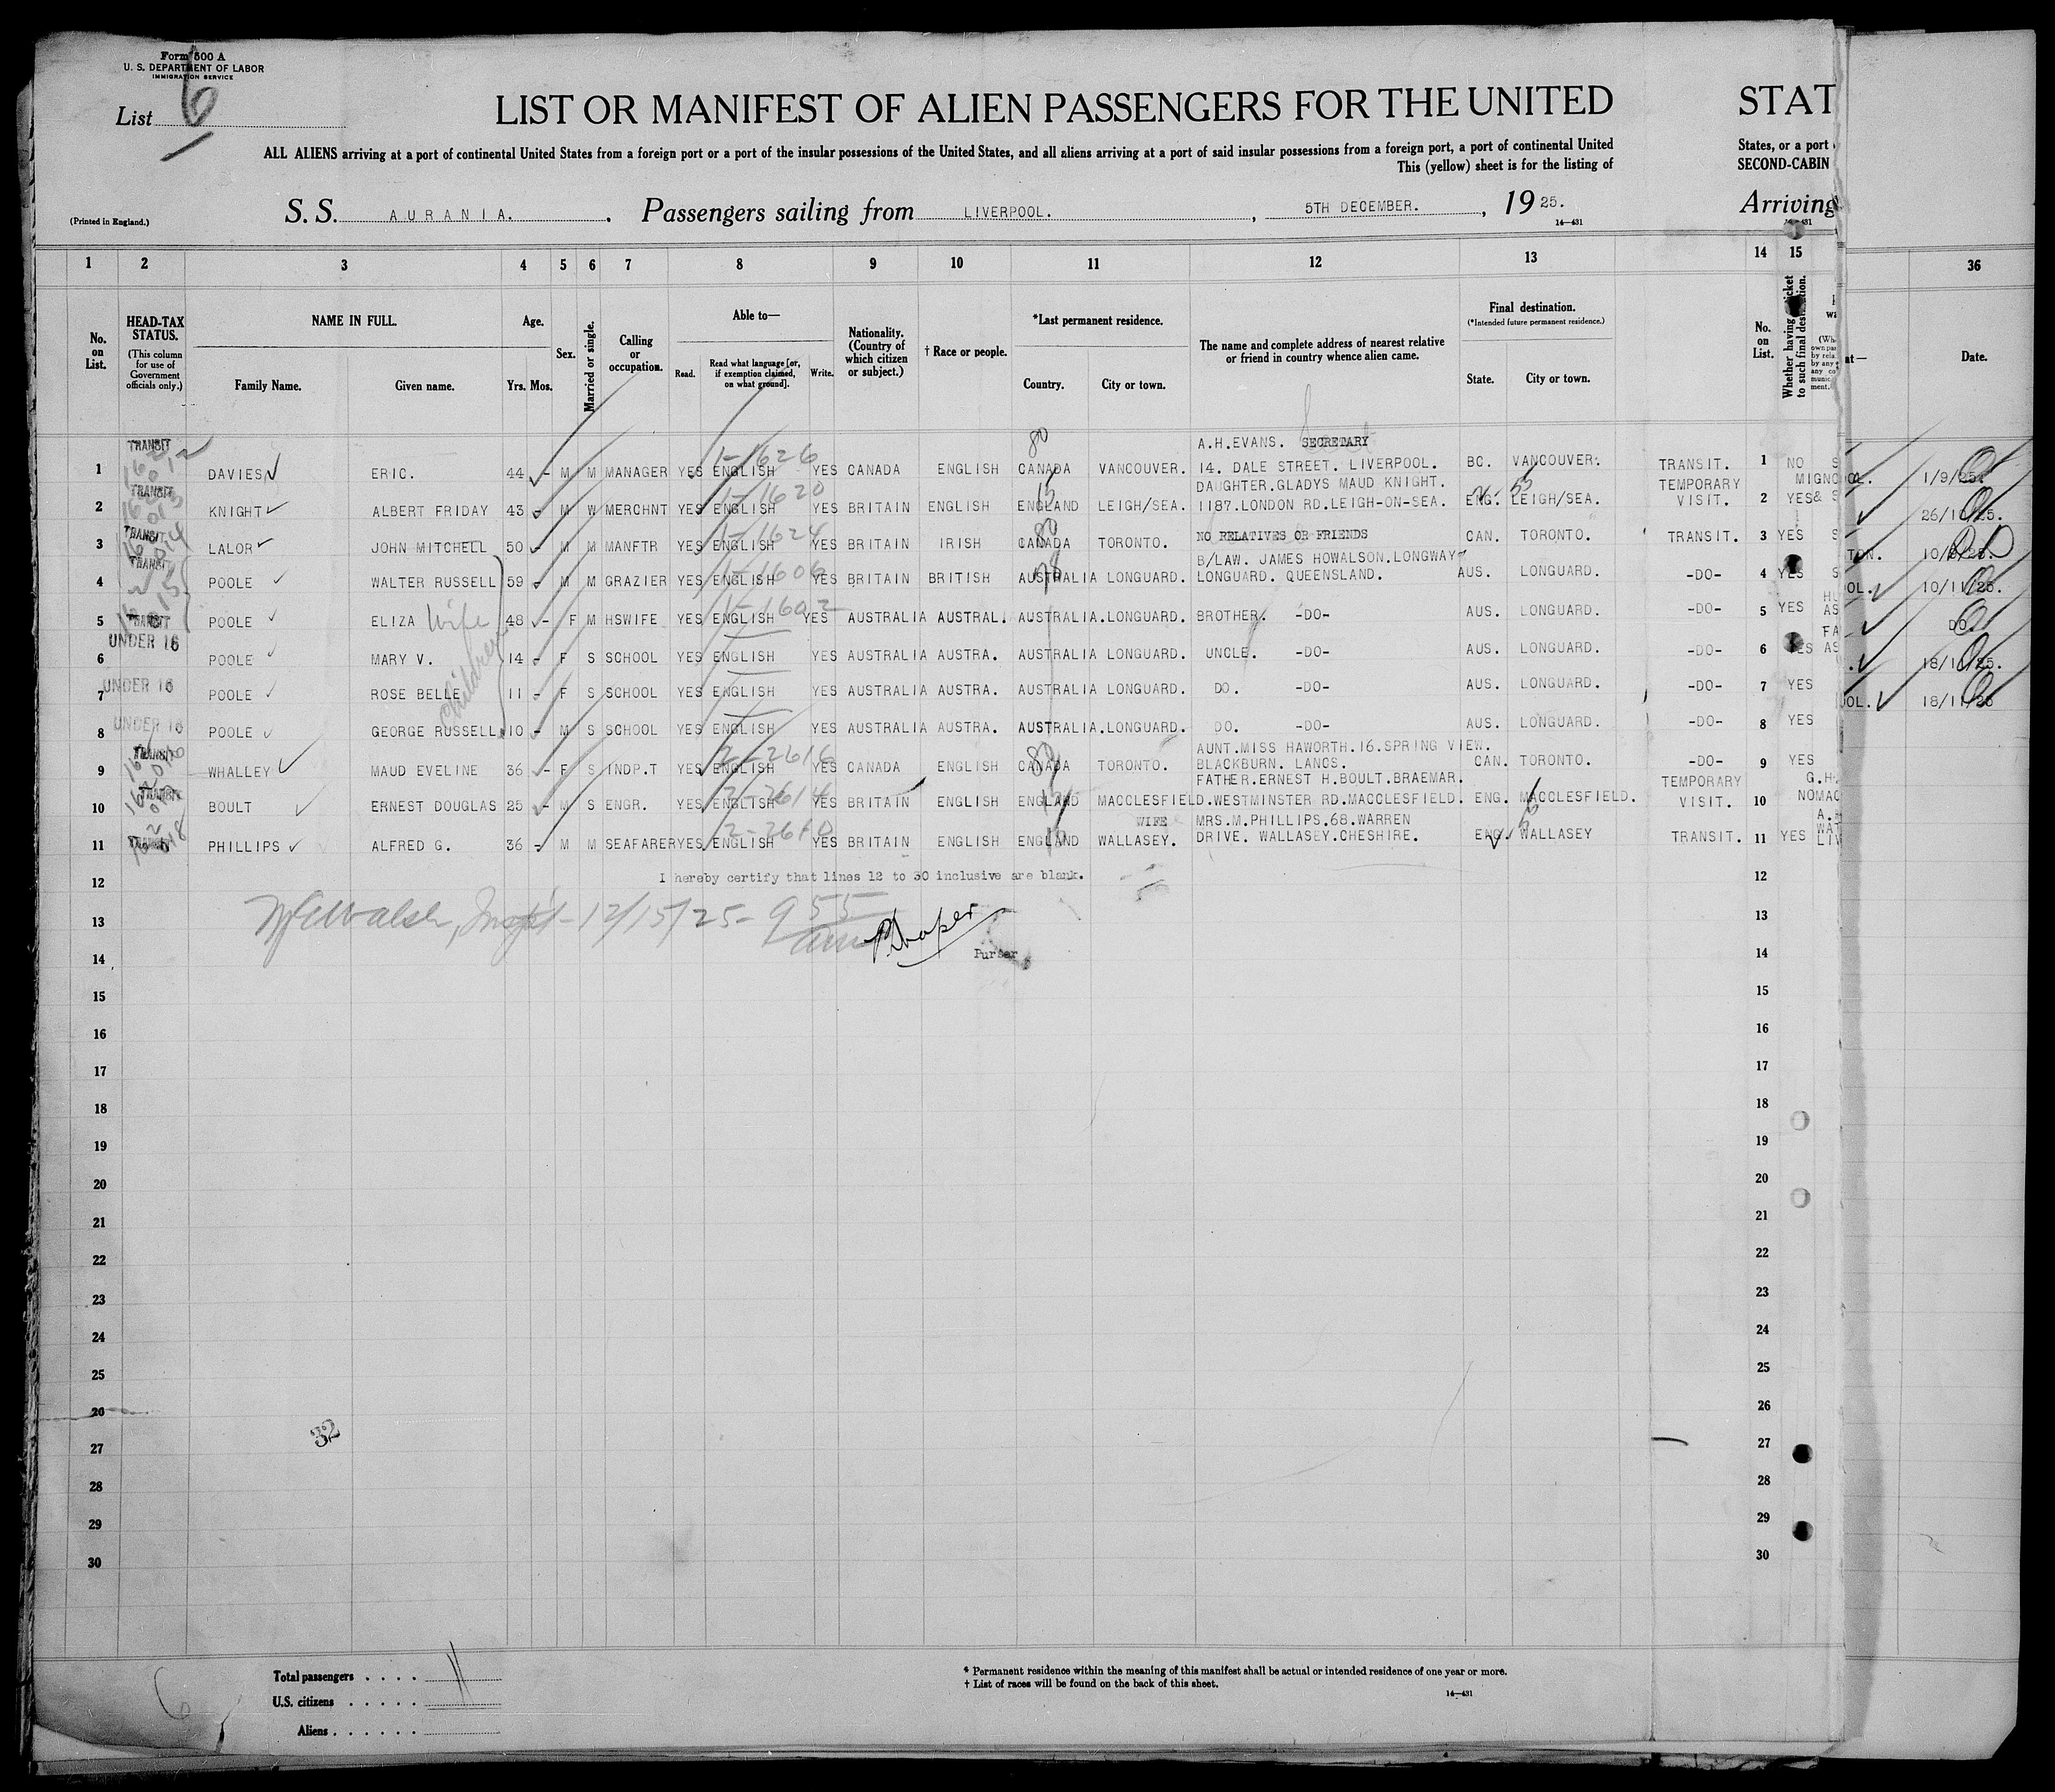 Form 500 A
U. S. DEPARTMENT OF LABOR
IMMIGRATION SERVICE
List 6
LIST OR MANIFEST OF ALIEN PASSENGERS FOR THE UNITED STAT
ALL ALIENS arriving at a port of continental United States from a foreign port or a port of the insular possessions of the United States, and all aliens arriving at a port of said insular possessions from a foreign port, a port of continental United States, or a port
This (yellow) sheet is for the listing of SECOND-CABIN
(Printed in England.)
S. S. AURANIA. , Passengers sailing from LIVERPOOL. , 5TH DECEMBER. , 1925. Arriving
14—431
1 2 3 4 5 6 7 8 9 10 11 12 13 14 15 36
No. on List.
HEAD-TAX STATUS.
(This column for use of Government officials only.)
NAME IN FULL.
Family Name. Given name.
Age.
Yrs. Mos.
Sex.
Married or single.
Calling or occupation.
Able to—
Read. Read what language [or, if exemption claimed, on what ground]. Write.
Nationality. (Country of which citizen or subject.)
† Race or people.
*Last permanent residence.
Country. City or town.
The name and complete address of nearest relative or friend in country whence alien came.
Final destination.
(*Intended future permanent residence.)
State. City or town.
No. on List.
Whether having ticket to such final destination.
Date.
TRANSIT 1-1626 80 A.H.EVANS. SECRETARY
1 DAVIES ERIC. 44 - M M MANAGER YES ENGLISH YES CANADA ENGLISH CANADA VANCOUVER. 14. DALE STREET. LIVERPOOL. BC. VANCOUVER. TRANSIT. 1 NO 1/9/25.
TRANSIT 1-1620 DAUGHTER.GLADYS MAUD KNIGHT. TEMPORARY
2 KNIGHT ALBERT FRIDAY 43 - M W MERCHNT YES ENGLISH YES BRITAIN ENGLISH ENGLAND LEIGH/SEA. 1187.LONDON RD.LEIGH-ON-SEA. ENG. LEIGH/SEA. VISIT. 2 YES 26/10/25.
TRANSIT 1-1624 80
3 LALOR JOHN MITCHELL 50 - M M MANFTR YES ENGLISH YES BRITAIN IRISH CANADA TORONTO. NO RELATIVES OR FRIENDS CAN. TORONTO. TRANSIT. 3 YES
TRANSIT 1-1606 78 B/LAW. JAMES HOWALSON.LONGWAY
4 POOLE WALTER RUSSELL 59 - M M GRAZIER YES ENGLISH YES BRITAIN BRITISH AUSTRALIA LONGUARD. LONGUARD. QUEENSLAND. AUS. LONGUARD. -DO- 4 YES 10/11/25.
TRANSIT 1-1602
5 POOLE ELIZA Wife 48 - F M HSWIFE YES ENGLISH YES AUSTRALIA AUSTRAL. AUSTRALIA. LONGUARD. BROTHER. -DO- AUS. LONGUARD. -DO- 5 YES DO.
UNDER 16
6 POOLE MARY V. 14 - F S SCHOOL YES ENGLISH YES AUSTRALIA AUSTRA. AUSTRALIA LONGUARD. UNCLE. -DO- AUS. LONGUARD. -DO- 6 YES 18/11/25.
Children
UNDER 16
7 POOLE ROSE BELLE 11 - F S SCHOOL YES ENGLISH YES AUSTRALIA AUSTRA. AUSTRALIA LONGUARD. DO. -DO- AUS. LONGUARD. -DO- 7 YES 18/11/25
UNDER 16
8 POOLE GEORGE RUSSELL 10 - M S SCHOOL YES ENGLISH YES AUSTRALIA AUSTRA. AUSTRALIA. LONGUARD. DO. -DO- AUS. LONGUARD. -DO- 8 YES
TRANSIT 2-2616 80 AUNT.MISS HAWORTH.16.SPRING VIEW.
9 WHALLEY MAUD EVELINE 36 - F S INDP.T YES ENGLISH YES CANADA ENGLISH CANADA TORONTO. BLACKBURN. LANCS. CAN. TORONTO. -DO- 9 YES
TRANSIT 2-2614 FATHER.ERNEST H.BOULT.BRAEMAR. TEMPORARY
10 BOULT ERNEST DOUGLAS 25 - M S ENGR. YES ENGLISH YES BRITAIN ENGLISH ENGLAND MACCLESFIELD.WESTMINSTER RD.MACCLESFIELD. ENG. MACCLESFIELD. VISIT. 10 NO
2-2610 WIFE MRS.M.PHILLIPS.68.WARREN
11 PHILLIPS ALFRED G. 36 - M M SEAFARER YES ENGLISH YES BRITAIN ENGLISH ENGLAND WALLASEY. DRIVE. WALLASEY.CHESHIRE. ENG. WALLASEY TRANSIT. 11 YES
12 I hereby certify that lines 12 to 30 inclusive are blank. 12
13 12/15/25 - 9 55 am 13
14 Purser 14
15 15
16 16
17 17
18 18
19 19
20 20
21 21
22 22
23 23
24 24
25 25
26 26
32
27 27
28 28
29 29
30 30
6
Total passengers . . . . 11
U.S. citizens . . . . .
Aliens . . . . . .
* Permanent residence within the meaning of this manifest shall be actual or intended residence of one year or more.
† List of races will be found on the back of this sheet.
14—431